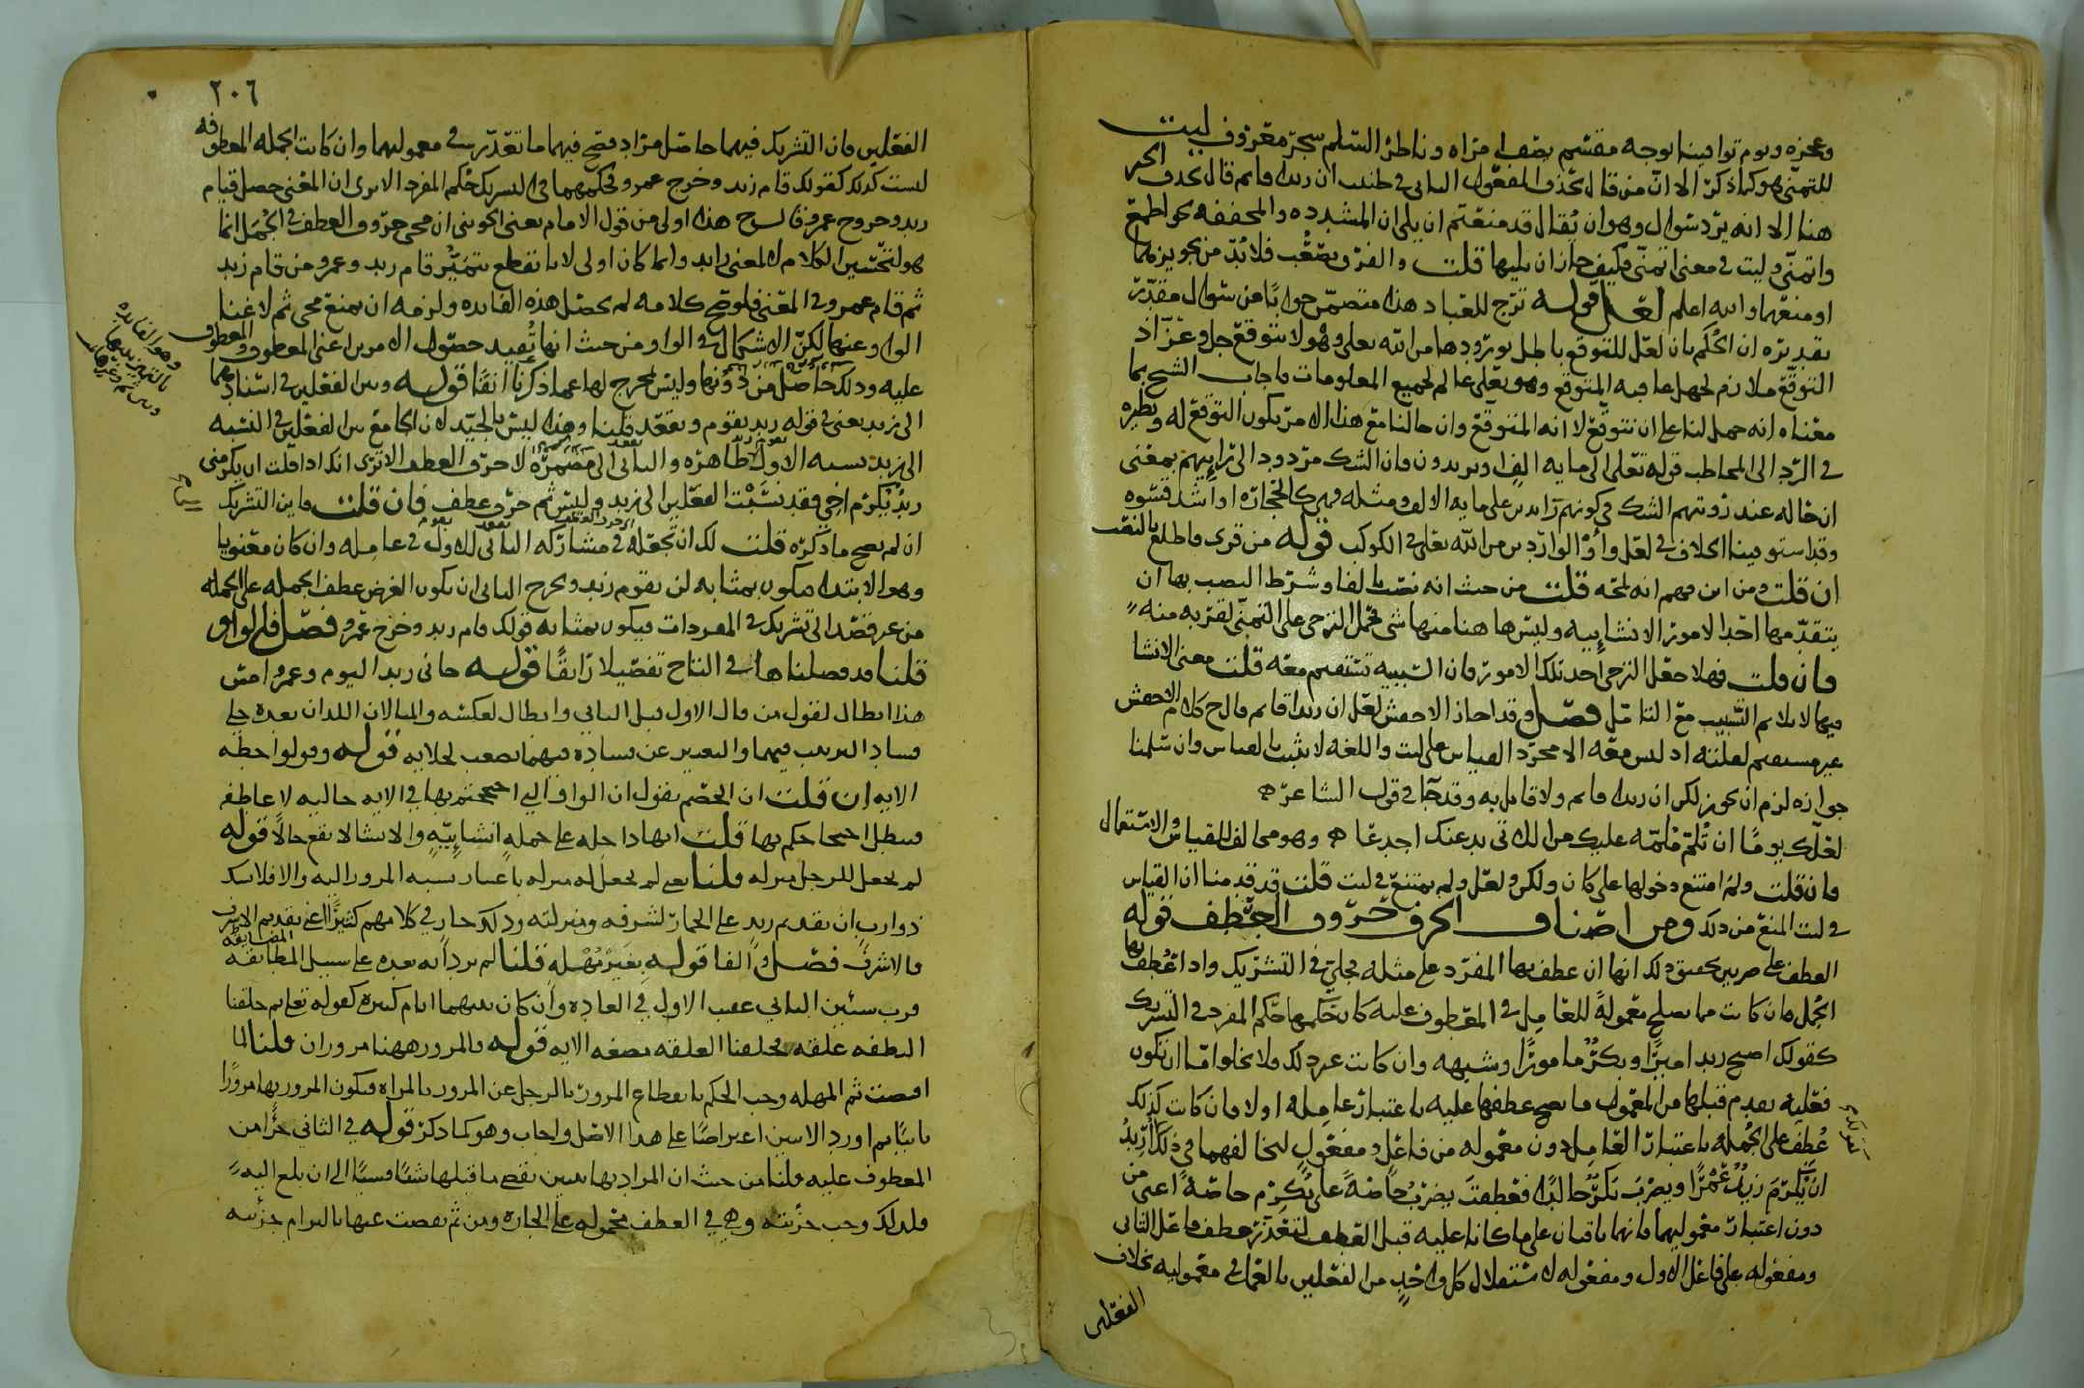 وعجزه ويوم توافينا بوجه مقسم يضف مزاه وناظر السلم سحر معروف ليت
للتمني هو كما ذكر الا ان من قال بحذف المفعول الثاني في ظننت ان زيدا قائم قال بحذف الخبر
هنا الا انه يرد سوال وهو ان يقال قد منعتم ان يلي ان المشدده والمخففه نحو اطمع
واتمنى وليت في معنى اتمنى فكيف جاز ان يليها قلت والفرق يصعب فلا بد من تجويزهما
او منعهما والله اعلم لعل قوله ترج للعباد هذا متضمن جوابا عن سوال مقدر
تقديره ان الحكم بان لعل للتوقع باطل بورودها من الله تعلى وهو لا يتوقع جل وعز اذ
التوقع ملازم لجهل عاقبه المتوقع وهو تعلى عالم لجميع المعلومات فاجاب الشيخ بما
معناه انه حمل لنا على ان نتوقع لا انه المتوقع وان حالنا مع هذا الامر يكون التوقع له ونظيره
في الرد الى المخاطب قوله تعلى الى مايه الف او يزيدون فان الشك مردود الى رايهم بمعنى
ان حاله عند رويتهم الشك في كونهم زايدين على مايه الالف ومثله فهي كالحجارة او اشد قسوه
وقد استوفينا الخلاف في لعل واو الواردين من الله تعلى في الكوكب قوله من قرى فاطلع بالنصب
ان قلت ومن اين فهم انه لمحه قلت من حيث انه نصب بالفا وشرط النصب بها ان
يتقدمها احد الامور الانشاييه وليس هاهنا منها شي فحمل الترجي على التمني لقربه منه
فان قلت فهلا جعل الترجي احد تلك الامور فان السببيه تستقيم معه قلت معنى الانشا
فيها لا يلايم التسبيب مع التامل فصل وقد اجاز الاخفش لعل ان زيدا قائم قال ح كلام الاخفش
غير مستقيم لعلته اذ ليس معه الا مجرد القياس على ليت واللغه لا تثبت بالقياس وان سلمنا
جوازه لزم ان يجوز لكن ان زيدا قائم ولا قايل به وقد جا في قول الشاعر
لعلك يوما ان تلم ملمه عليك من اللاتي يدعنك اجدعا وهو مخالف للقياس والاستعمال
فان قلت ولم امتنع دخولها على كان ولكن ولعل ولم يمتنع في ليت قلت قد قدمنا ان القياس
في ليت المنع من ذلك ومن اصناف الحرف حروف العطف قوله
العطف على ضربين تحقيق ذلك انها ان عطف بها المفرد على مثله فجلي في التشريك واذا عطف بها
الجمل فان كانت مما يصلح معمولة للعامل في المعطوف عليه كان حكمها حكم المفرد في التشريك
كقولك اصبح زيد اميرا وبكر مامورا وشبهه وان كانت غير ذلك فلا يخلوا اما ان تكون
فعليه تقدم قبلها من المعمول ما يصح عطفها عليه باعتبار عامله او لا فان كانت كذلك
عطف على الجمله باعتبار العامل دون معموله من فاعل ومفعول لتخالفهما في ذلك اريد
ان يكرم زيد عمرا ويضرب بكر خالدا فعطفت يضرب خاصة على يكرم خاصة اعني من
دون اعتبار معموليهما فانهما باقيان على ما كانا عليه قبل العطف لتعذر عطف فاعل الثاني
ومفعوله على فاعل الاول ومفعوله لاستقلال كل واحد من الفعلين بالعمل في معموليه بخلاف
الفعلين
٢٠٦
الفعلين فان التشريك فيهما حاصل مراد فصح فيهما ما تعذر في معموليهما وان كانت الجمله المعطوفه
ليست كذلك كقولك قام زيد وخرج عمرو فحكمهما في التشريك حكم المفرد الا ترى ان المعنى حصل قيام
زيد وخروج عمرو قال ح هذا اولى من قول الامام يعني الجويني ان مجي حروف العطف في الجمل انما
هو لتحسين الكلام لا لمعنى زايد وانما كان اولى لانا نقطع بتميز قام زيد وعمرو من قام زيد
ثم قام عمرو في المعنى فلو صح كلامه لم تحصل هذه الفايده ولزمه ان يمنع مجي ثم لاغنا
الواو عنها لكن الاشكال في الواو من حيث انها تفيد حصول الامرين اعني المعطوف والمعطوف
عليه وذلك حاصل من دونها وليس المخرج لها عما ذكرنا انفا قوله وبين الفعلين في اسنادهما
الى زيد يعني في قوله زيد يقوم ويقعد قلنا وهذا ليس بالجيد لان الجامع بين الفعلين في النسبه
الى زيد نسبه الاول ظاهره والثاني الى مضمره لا حرف العطف الا ترى انك اذا قلت ان يكرمني
زيد يكرم اخي فقد نسبت الفعلين الى زيد وليس ثم حرف عطف فان قلت فاين التشريك
ان لم يصح ما ذكره قلت لك ان تجعله في مشاركه الثاني للاول في عامله وان كان معنويا
وهو الابتدا فيكون بمثابه لن يقوم زيد ويخرج الثاني ان يكون الغرض عطف الجمله على الجمله
من غير قصد الى تشريك في المفردات فيكون بمثابه قولك قام زيد وخرج عمرو فصل فالواو
قلنا قد فصلناها في التاج تفصيلا رايقا قوله جاني زيد اليوم وعمرو امس
هذا ابطال لقول من قال الاول قبل الثاني وابطال لعكسه والمثالان اللذان بعده على
فساد الترتيب فيهما والتعبير عن فساده فيهما يصعب قوله وقولوا حطه
الايه ان قلت ان الخصم يقول ان الواو التي احتججتم بها في الايه حاليه لا عاطفه
فبطل احتجاجكم بها قلت انها داخله على جملة انشاييه والانشا لا يقع حالا قوله
لم يجعل للرجل منزله قلنا يعني لم يجعل له منزله باعتبار نسبه المرور اليه والا فلا شك
ذو ارب ان تقديم زيد على الحمار لشرفه ومنزلته وذلك جار في كلامهم كثيرا اعني تقديم الاشرف
فالاشرف فصل والفا قوله بغير مهله قلنا لم يرد انه بعده على سبيل المطابقه
فرب شيين الثاني عقب الاول في العاده وان كان بينهما ايام كثيره كقوله تعلى ثم خلقنا
النطفه علقه فخلقنا العلقه مضغه الايه قوله فالمرور ههنا مروران قلنا لما
اقتضت ثم المهله وجب الحكم بانقطاع المرور بالرجل عن المرور بالمراه فيكون المرور بها مرورا
ثانيا ثم اورد اعتراضا على هذا الاصل واجاب وهو كما ذكر قوله في الثاني جزا من
المعطوف عليه قلنا من حيث ان المراد بها تبيين تقضي ما قبلها شيا فشيا الى ان بلغ اليه
فلذلك وجب جزئيته وهي في العطف محموله على الجاره ومن ثم نقصت عنها بالتزام جزئيته
وهو الفايده